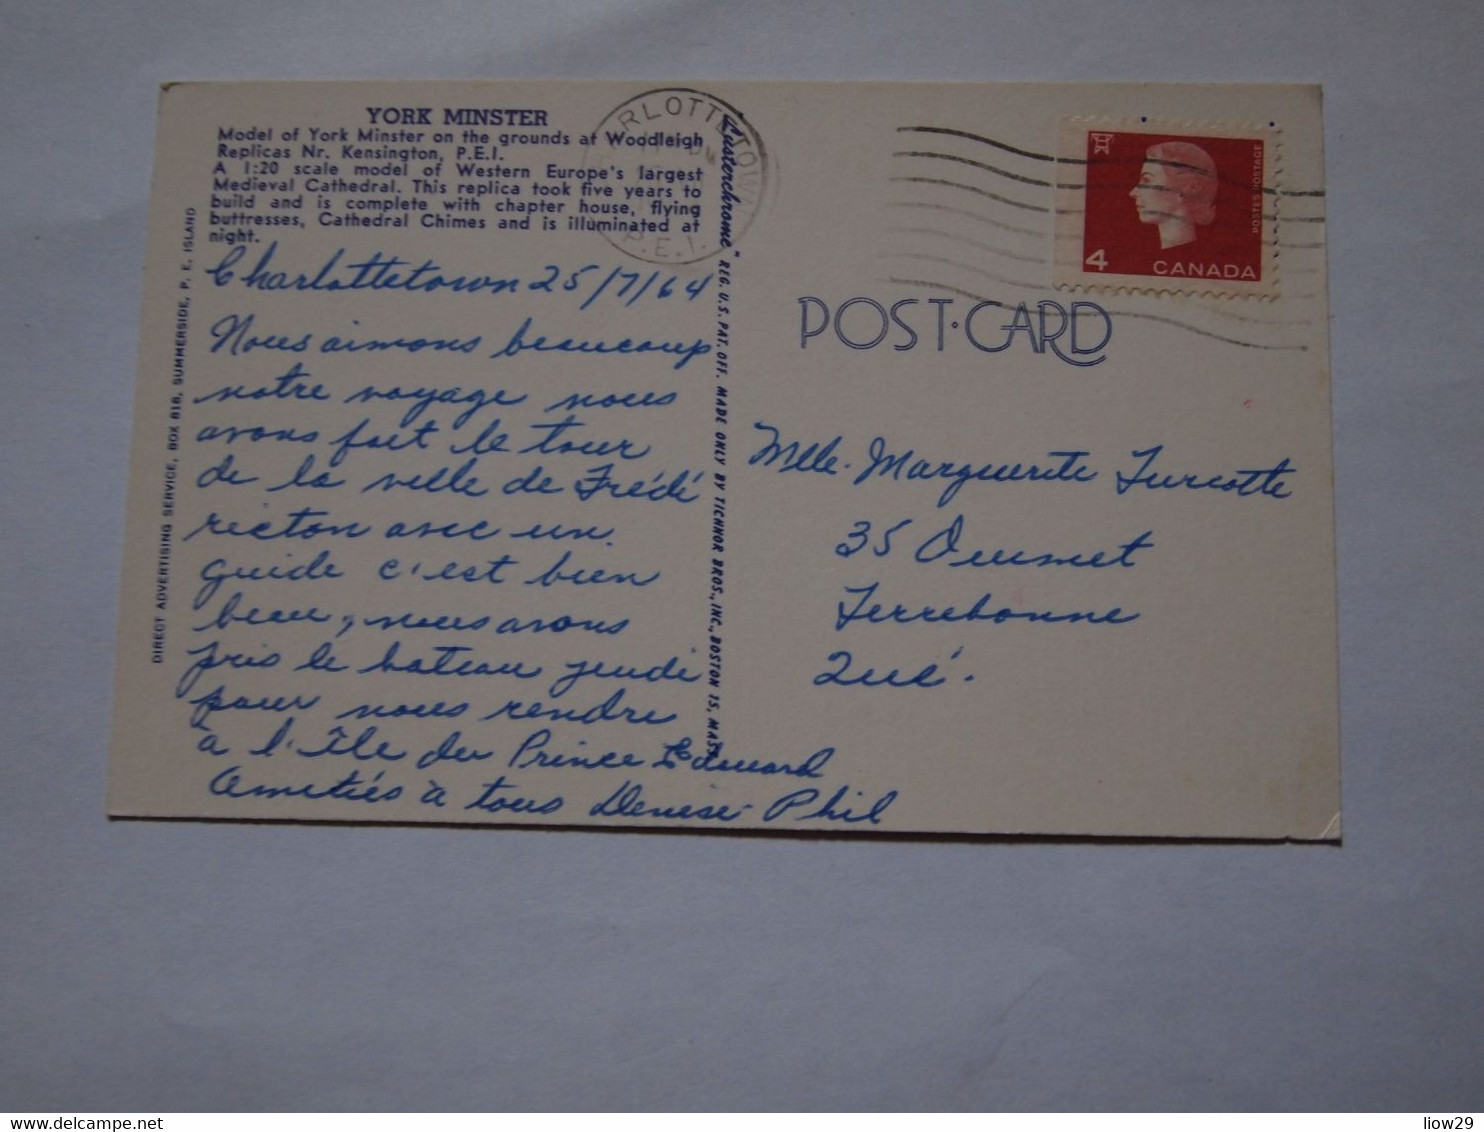 YORK MINSTER
Model of York Minster on the grounds at Woodleigh
Replicas Nr. Kensington, P.E.I.
A 1:20 scale model of Western Europe's largest
Medieval Cathedral. This replica took five years to
build and is complete with chapter house, flying
buttresses, Cathedral Chimes and is illuminated at
night.
Charlottetown 25/7/64
Nous aimons beaucoup
notre voyage nous
avons fait le tour
de la ville de Frédé
ricton avec un
guide c'est bien
beau, nous avons
pris le bateau jeudi
pour nous rendre
à l'île du Prince Edouard
Amitiés à tous Denise Phil
DIRECT ADVERTISING SERVICE, BOX 818, SUMMERSIDE, P. E. ISLAND
"Lusterchrome" REG. U.S. PAT. OFF. MADE ONLY BY TICHNOR BROS., INC., BOSTON 15, MASS.
RLOTTETOWN
P.E.I.
4
CANADA
POSTES POSTAGE
POST·CARD
Mlle. Marguerite Turcotte
35 Ouimet
Terrebonne
Qué.
delcampe.net
liow29